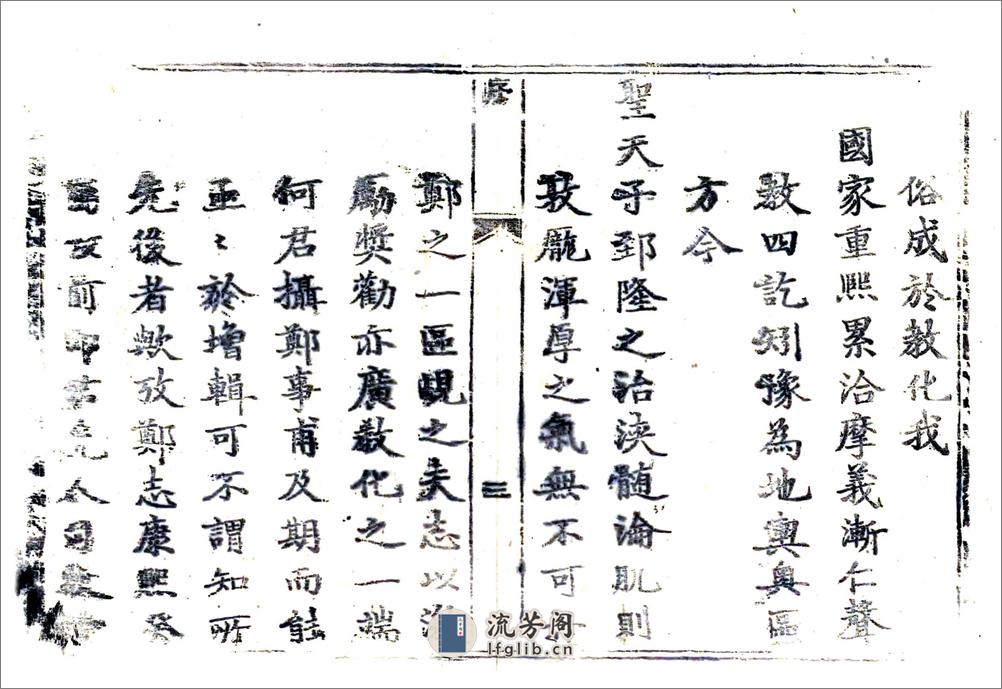 俗成於教化我
國家重熙累洽摩義漸仁聲
教四訖矧豫為地輿奥區
方今
聖天子郅隆之治浹髓淪肌則
敦龐渾厚之氣無不可
序
三
鄭之一區覘之夫志以
勵獎勸亦廣教化之一端
何君攝鄭事甫及期而能
亟〻於增輯可不謂知所
先後者歟攷鄭志康熙癸
前
流芳阁
lfglib.cn